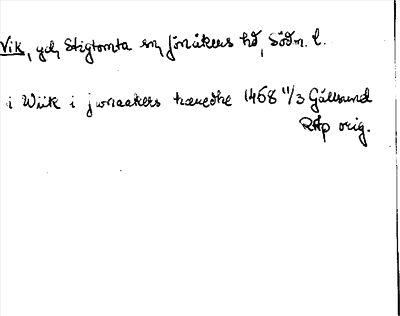 Vik, gd, Stigtomta sn, Jönåkers hd, Södm. l.
i Wiik i jwnaakers hæredhe 1468 11/3 Gällsund
RAp orig.